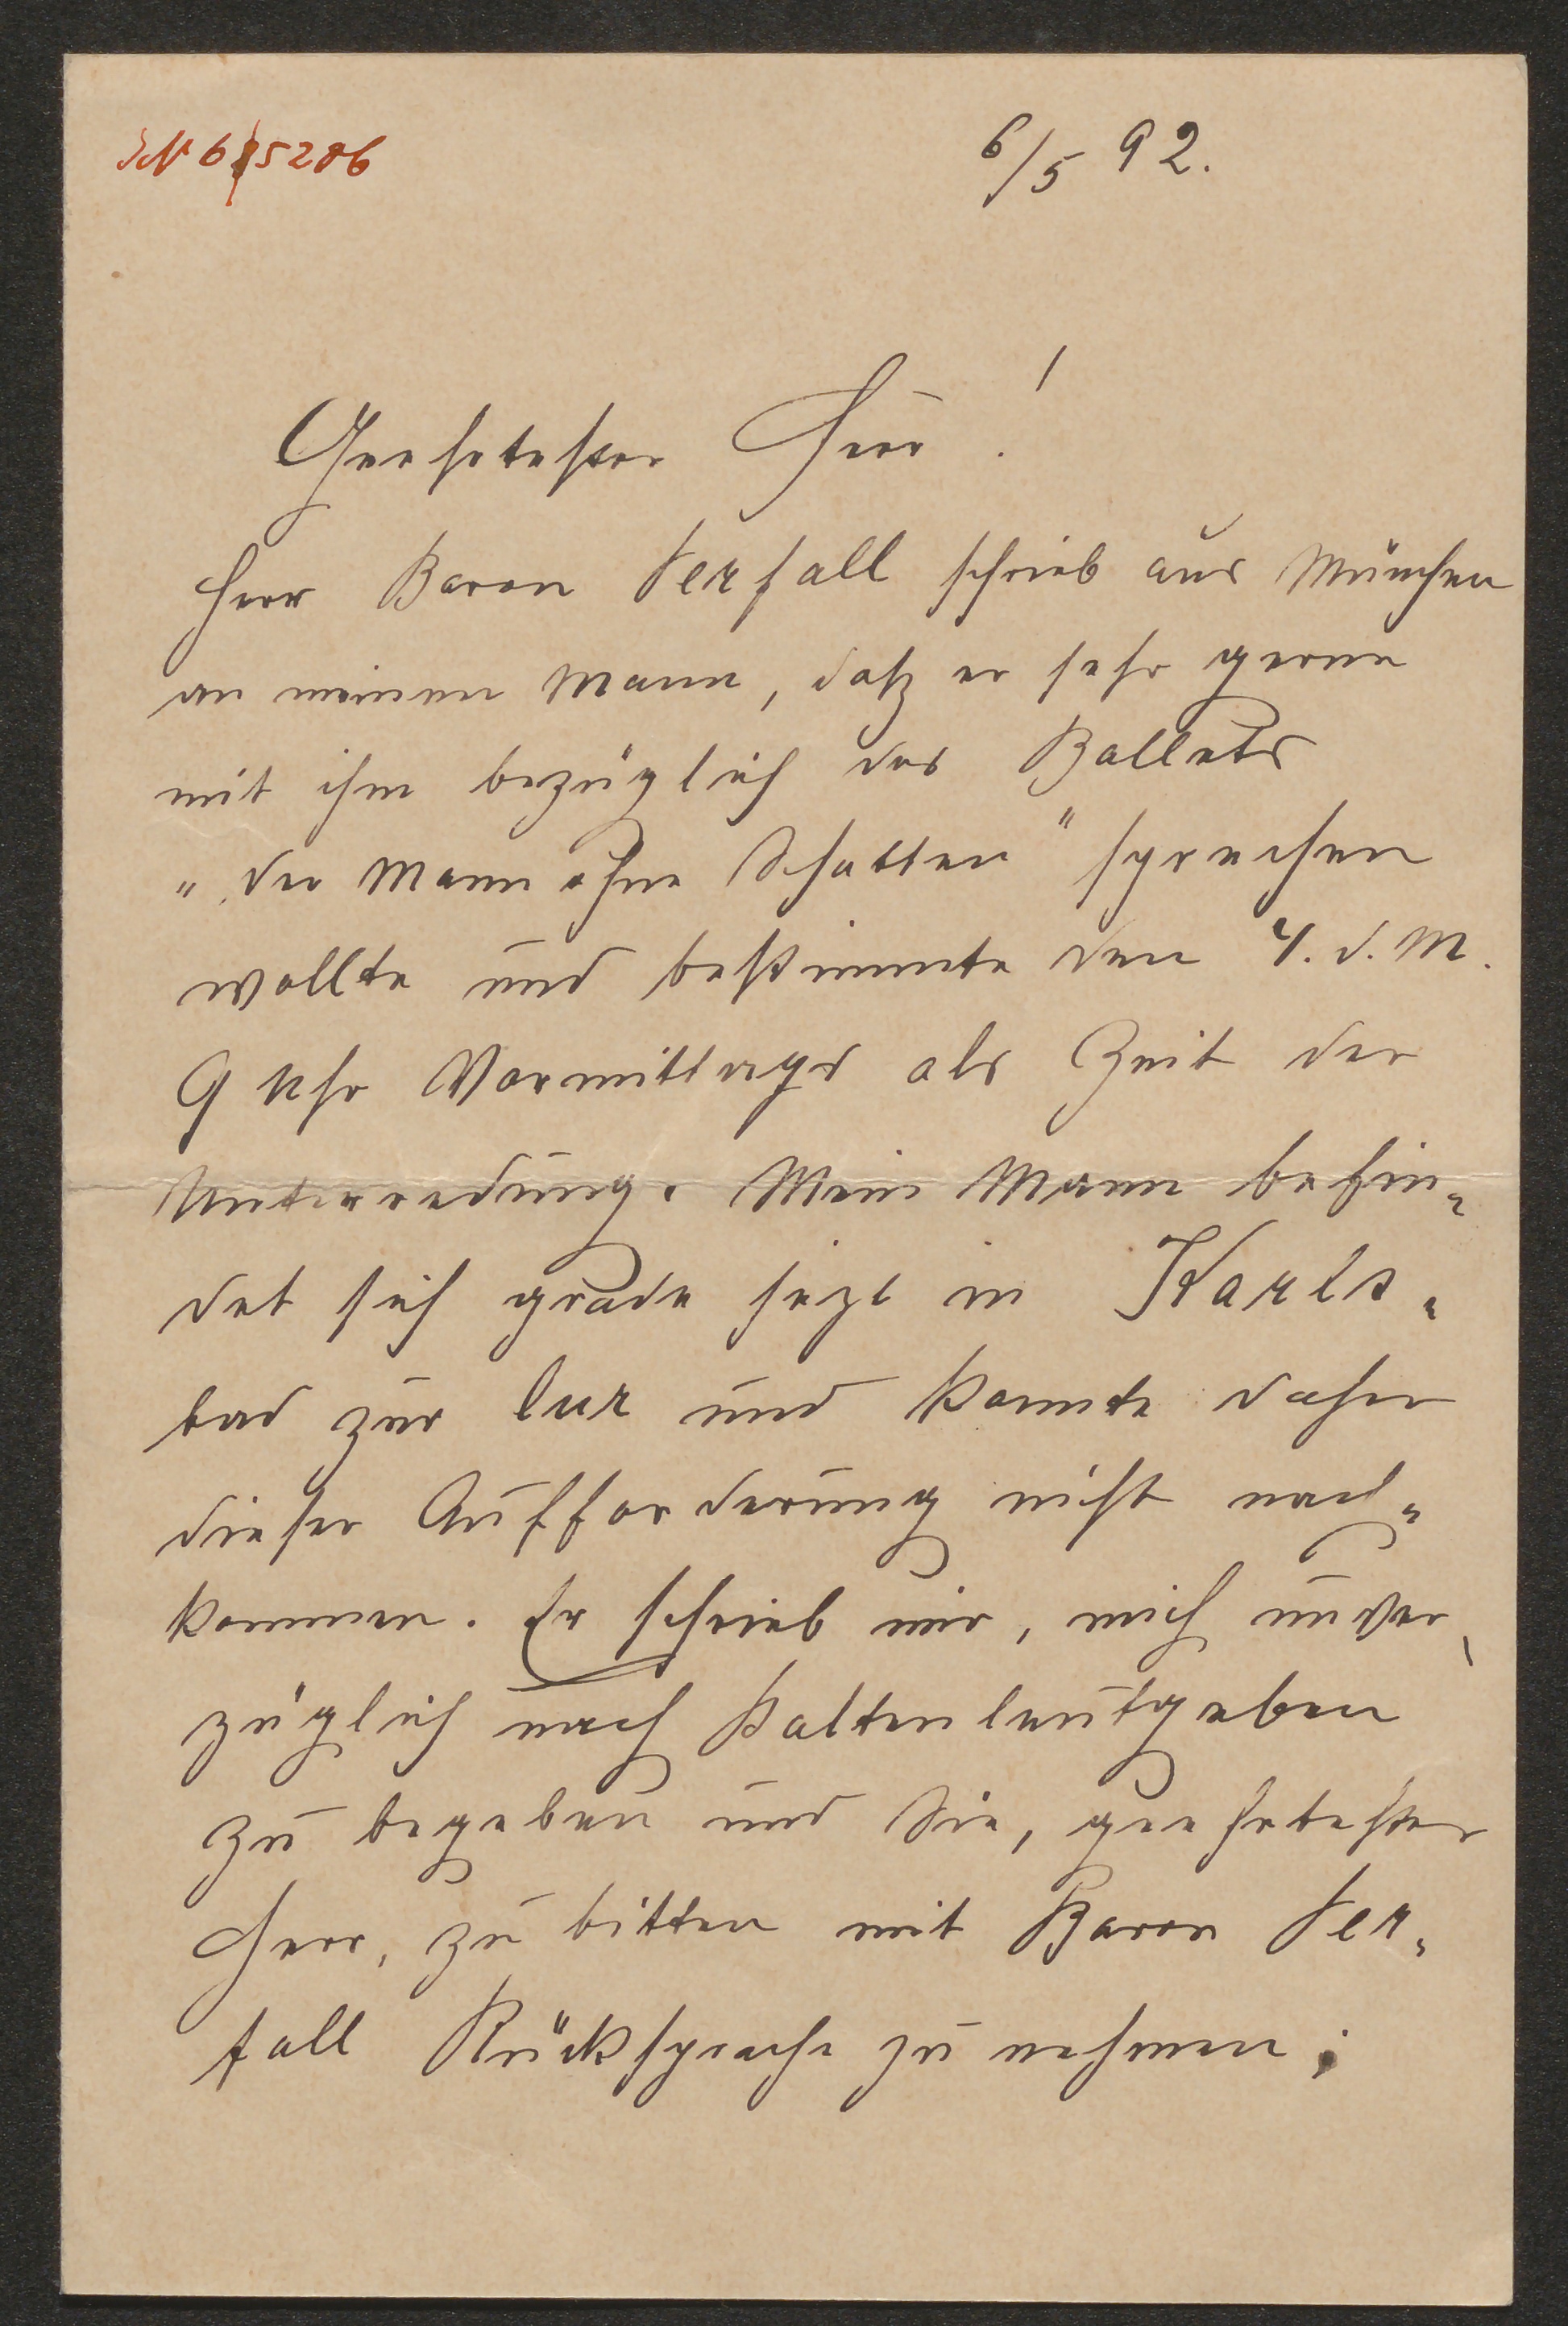 6/5 92.
Geehrtester Herr!
Herr Baron Perfall schrieb aus München
an meinen Mann, daß er sehr gerne
mit ihm bezüglich des Ballets
„der Mann ohne Schatten" sprechen
wollte und bestimmte den 4. d. M.
9 Uhr Vormittags als Zeit der
Unterredung. Mein Mann befin-
det sich grade jezt in Karls-
bad zur Cur und konnte daher
dieser Aufforderung nicht nach-
kommen. Er schrieb mir, mich unver-
züglich nach Kaltenleutgeben
zu begeben und Sie, geehrtester
Herr, zu bitten mit Baron Per-
fall Rücksprache zu nehmen;